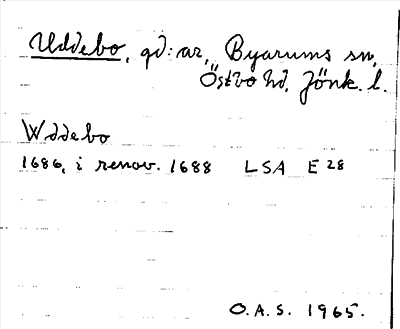 Uddebo, gd:ar, Byarums sn,
Östbo hd, Jönk. l.
Wddebo
1686, i renov. 1688 LSA E 28
O.A.S. 1965.